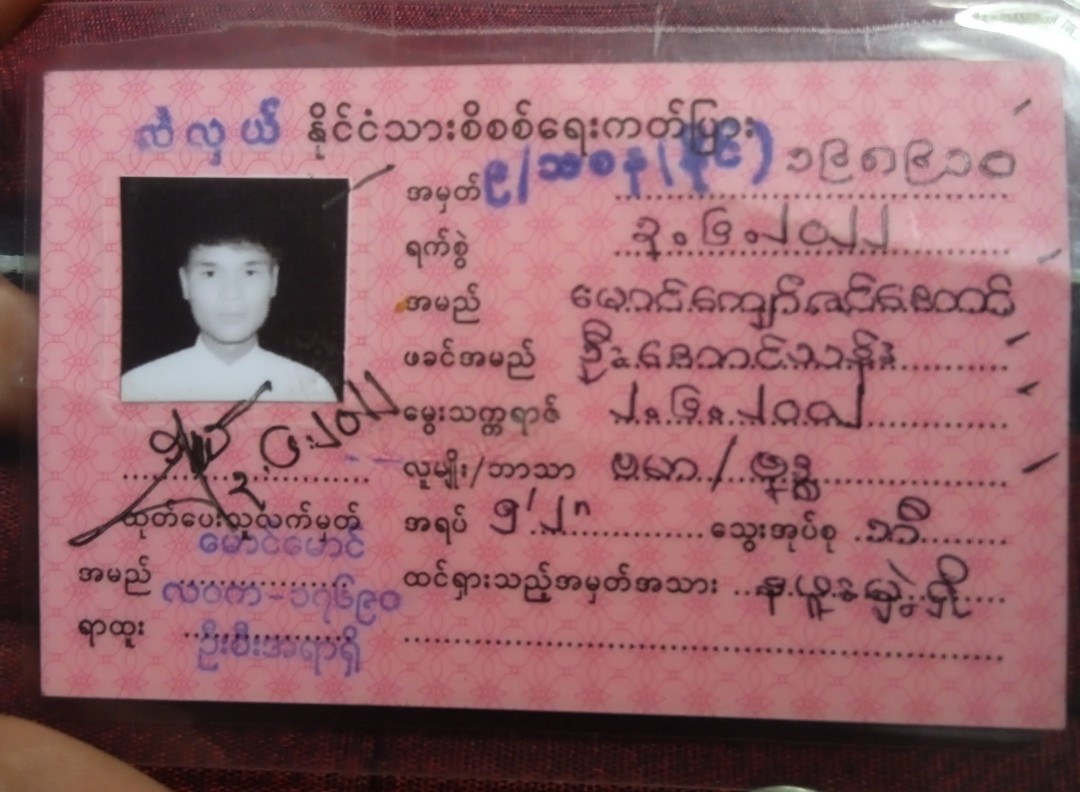 လဲလှယ် နိုင်ငံသားစိစစ်ရေးကတ်ပြား
အမှတ် ၉/သစန(နိုင်) ၁၉၈၉၁၀
ရက်စွဲ ၃.၆.၂၀၂၂
အမည် မောင်ကျော်ဇင်ထောင်
ဖခင်အမည် ဦးထောင်သန်း
မွေးသက္ကရာဇ် ၂.၆.၂၀၀၂
လူမျိုး/ဘာသာ ဗမာ/ဗုဒ္ဓ
အရပ် ၅'၂" သွေးအုပ်စု ဘီ
ထင်ရှားသည့်အမှတ်အသား
ထုတ်ပေးသူလက်မှတ်
အမည် မောင်မောင်
လဝက-၁၇၆၉၀
ရာထူး ဦးစီးအရာရှိ